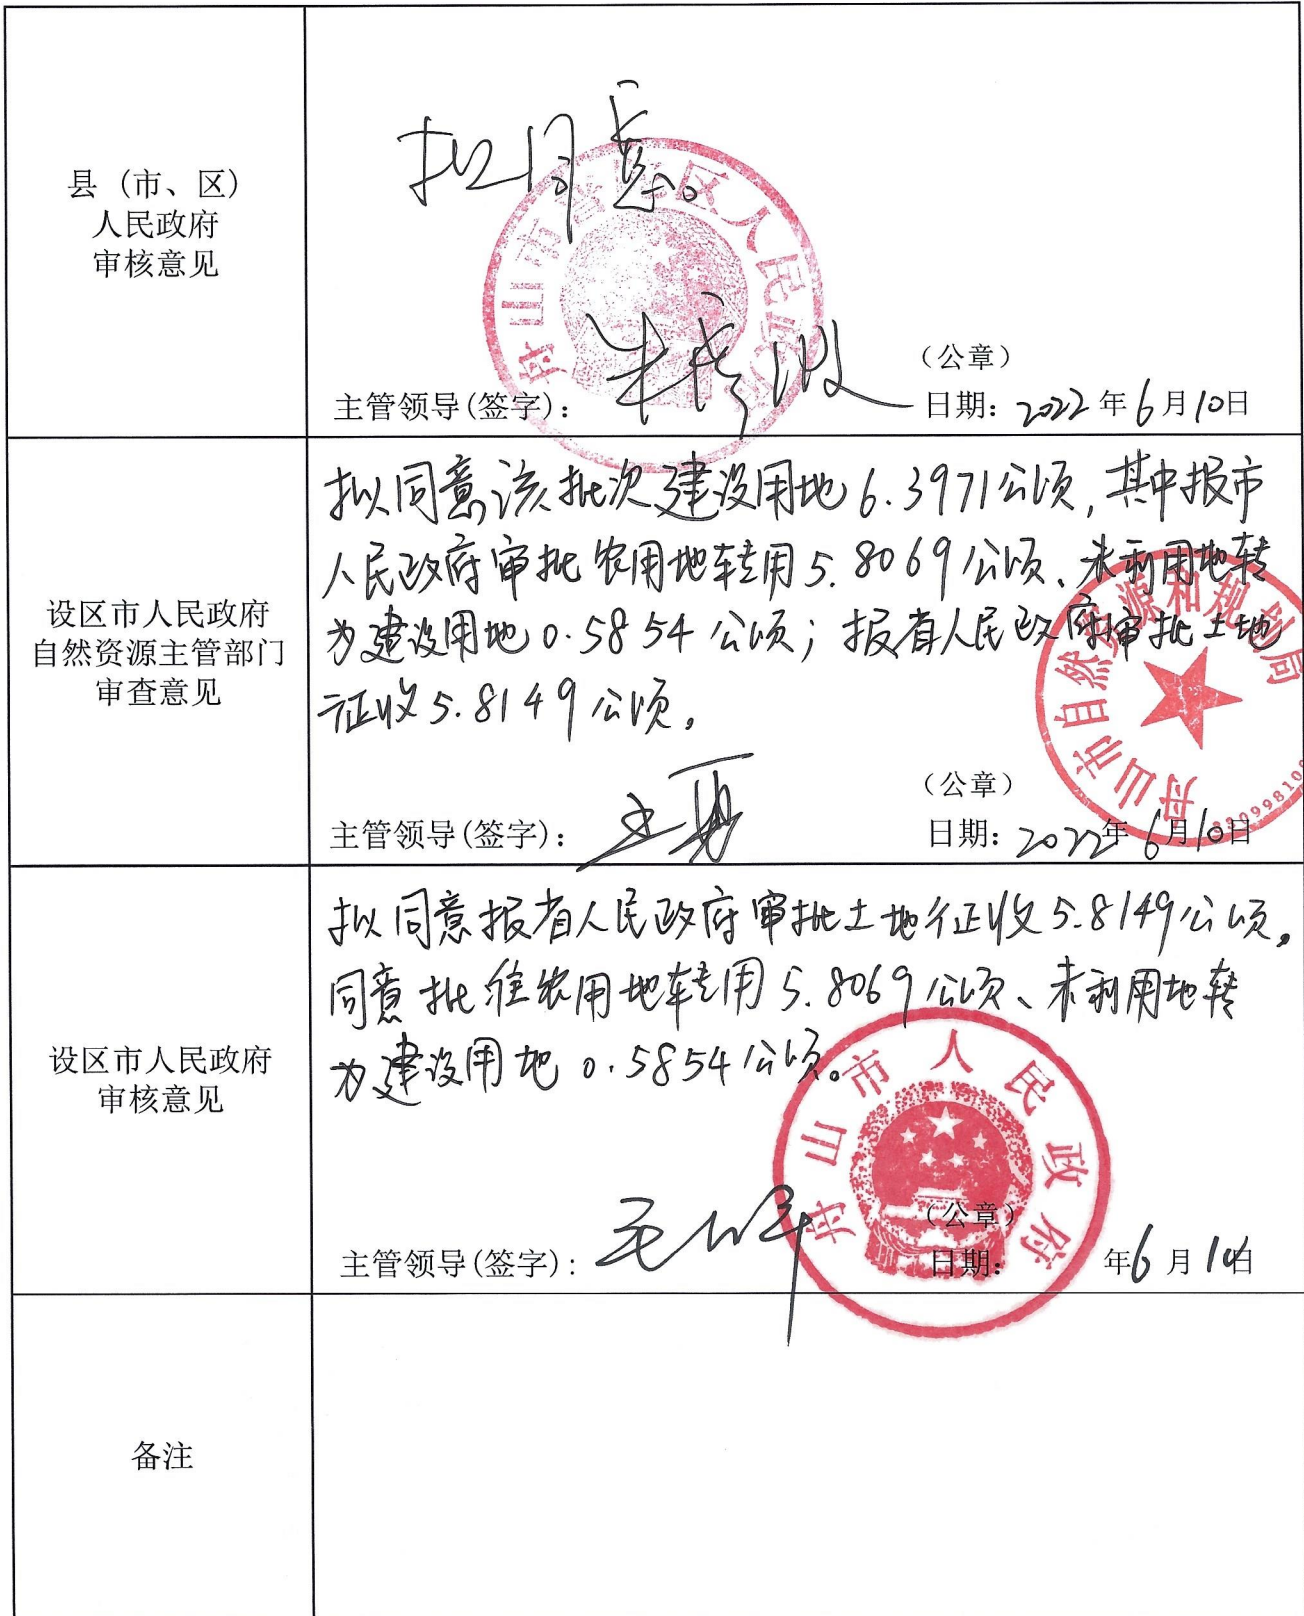 县（市、区）
人民政府
审核意见
拟同意。
舟山市普陀区人民政府
（公章）
主管领导(签字)：
日期：2022年6月10日
设区市人民政府
自然资源主管部门
审查意见
拟同意该批次建设用地6.3971公顷，其中报市
人民政府审批农用地转用5.8069公顷、未利用地转
为建设用地0.5854公顷；报省人民政府审批土地
征收5.8149公顷。
舟山市自然资源和规划局
（公章）
主管领导(签字)：
日期：2022年6月10日
设区市人民政府
审核意见
拟同意报省人民政府审批土地征收5.8149公顷。
同意批准农用地转用5.8069公顷、未利用地转
为建设用地0.5854公顷。
舟山市人民政府
（公章）
主管领导(签字)：
日期： 年6月10日
备注